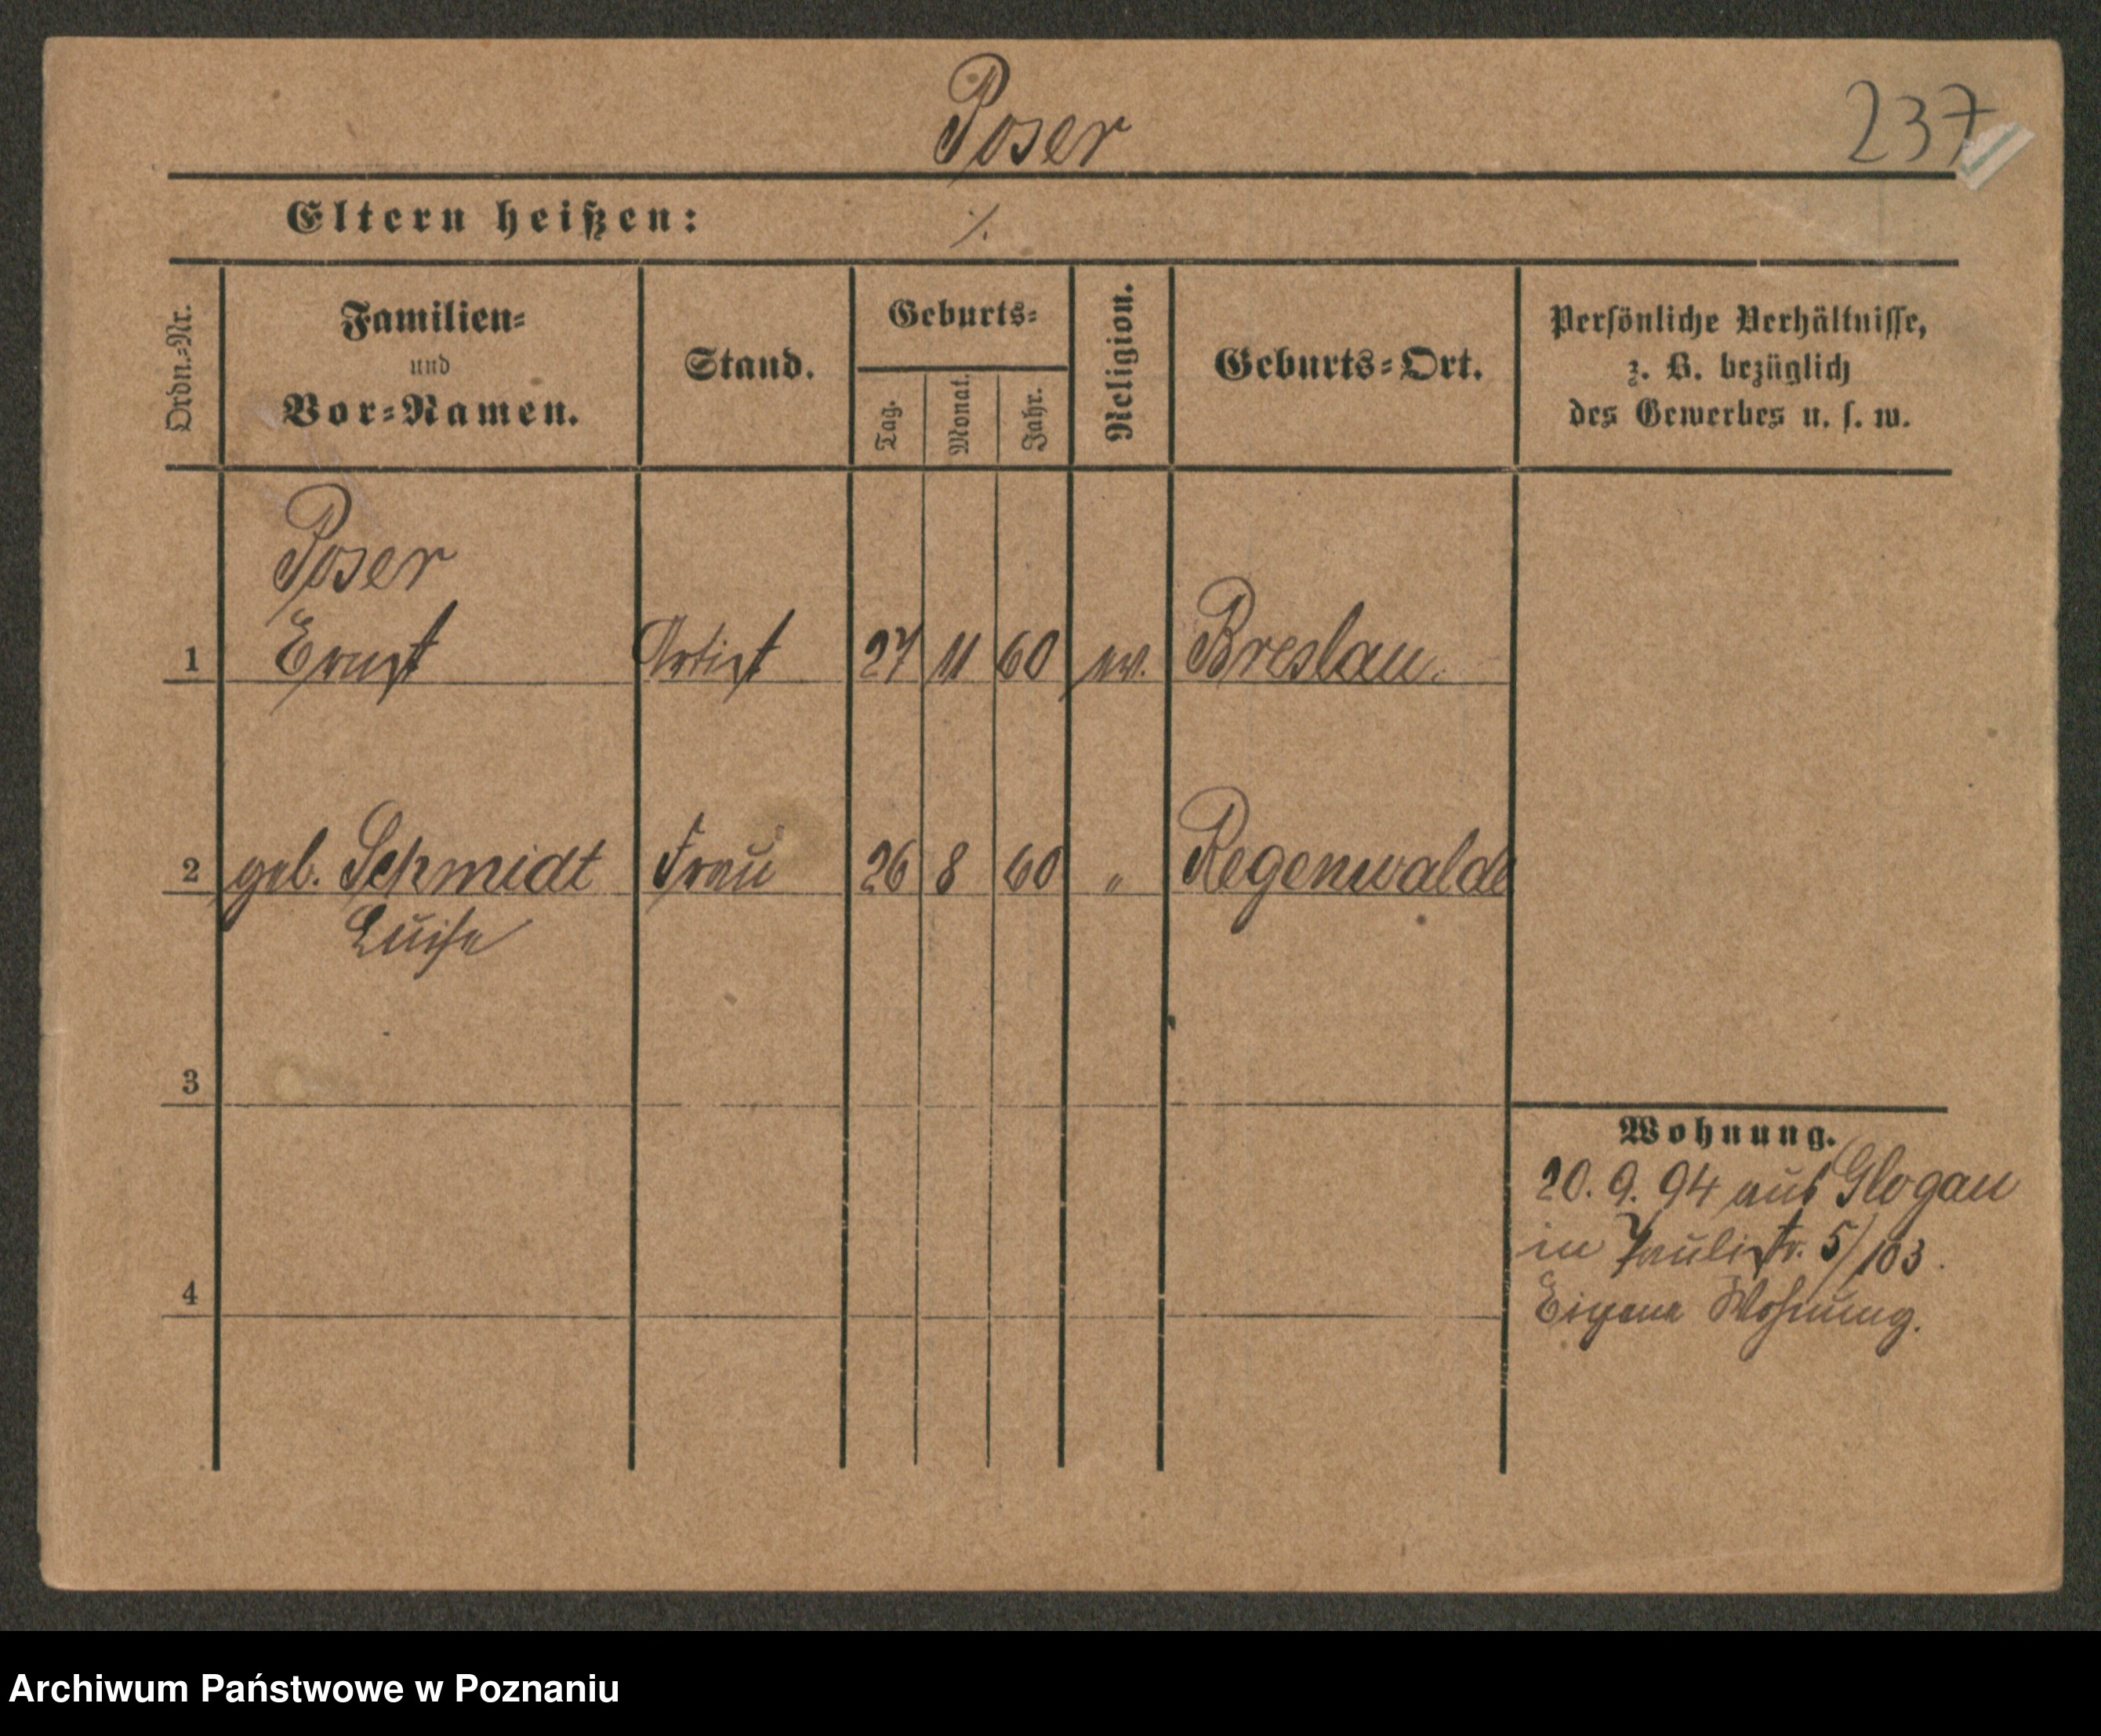 Poser
237
Eltern heißen: ⁒
Ordn.=Nr.
Familien=
und
Vor=Namen.
Stand.
Geburts=
Tag.
Monat.
Jahr.
Religion.
Geburts=Ort.
Persönliche Verhältnisse,
z. B. bezüglich
des Gewerbes u. s. w.
Poser
1 Ernst Artist 27 11 60 ev. Breslau.
2 geb. Schmidt Frau 26 8 60 " Regenwalde
Luise
3
4
Wohnung.
20. 9. 94 aus Glogau
in Paulistr. 5/103.
Eigene Wohnung.
Archiwum Państwowe w Poznaniu